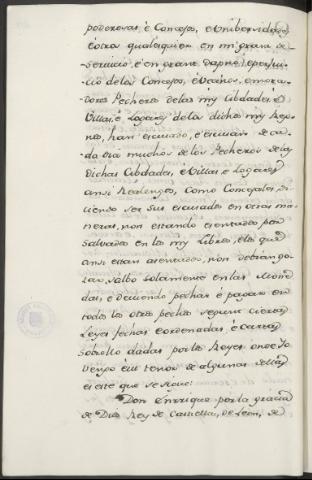 poderosas, é Concejos, é Universidades,
é otras qualesquier en mi grand de-
servicio, é en grand dapno, é perjui-
cio de los Concejos, é Vecinos, é mora-
dores Pecheros de las mis Cibdades, é
Villas, é Logares de los dichos mis Reg-
nos, han escusado, é escusan de ca-
da dia muchos de los Pecheros de las
dichas Cibdades, é Villas, é Logares
ansi Realengos, como Concejales, di-
ciendo ser sus escusados en otras ma-
neras, non estando asentados por
salvados en los mis Libros, é los que
ansi estan asentados, non debian go-
zar, salbo solamente en las Mone-
das, é debiendo pechar é pagar en
todos los otros pechos segunt ciertas
Leyes fechas é ordenadas, é Cartas
sobre ello dadas por los Reyes onde Yo
vengo cuio tenor de algunas dellas
es este que se sigue:
Don Enrique por la gracia
de Dios Rey de Castiella, de Leon, de